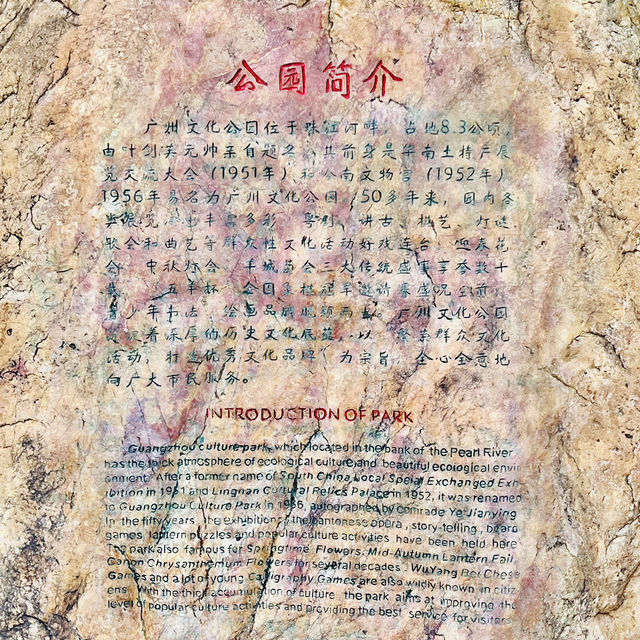 公园简介
广州文化公园位于珠江河畔，占地8.3公顷，
由叶剑英元帅亲自题名，其前身是华南土特产展
览交流大会（1951年）和岭南文物宫（1952年）
1956年易名为广州文化公园，50多年来，园内各
类展览丰富多彩，粤剧、讲古、棋艺、灯谜
歌会和曲艺等群众性文化活动好戏连台，迎春花
会、中秋灯会、羊城菊会三大传统盛事享誉数十
载，五羊杯全国象棋冠军邀请赛盛况空前，
青少年书法、绘画品牌
深厚的历史文化底蕴，以繁荣群众文化
活动，打造优秀文化品牌为宗旨，全心全意地
向广大市民服务。
INTRODUCTION OF PARK
Guangzhou culture park, which located in the bank of the Pearl River
has the thick atmosphere of ecological culture and beautiful ecological envir
onment. After a former name of South China Local Special Exchanged Exh
ibition in 1951 and Lingnan Cultural Relics Palace in 1952, it was renamed
in Guangzhou Culture Park in 1956, autographed by Comrade Ye Jianying
In the fifty years, the exhibitions, the cantoness opera, story-telling, board
games, lantern puzzles and popular culture activities have been held here
The park also famous for Springtime Flowers, Mid-Autumn Lantern Fail,
Canon Chrysanthemum Flowers in several decades. WuYang Bei Chess
Games and a lot of young Calligraphy Games are also wildly known in citiz
ens. With the thick accumulation of culture, the park aims at improving the
level of popular culture activities and providing the best service for visitors